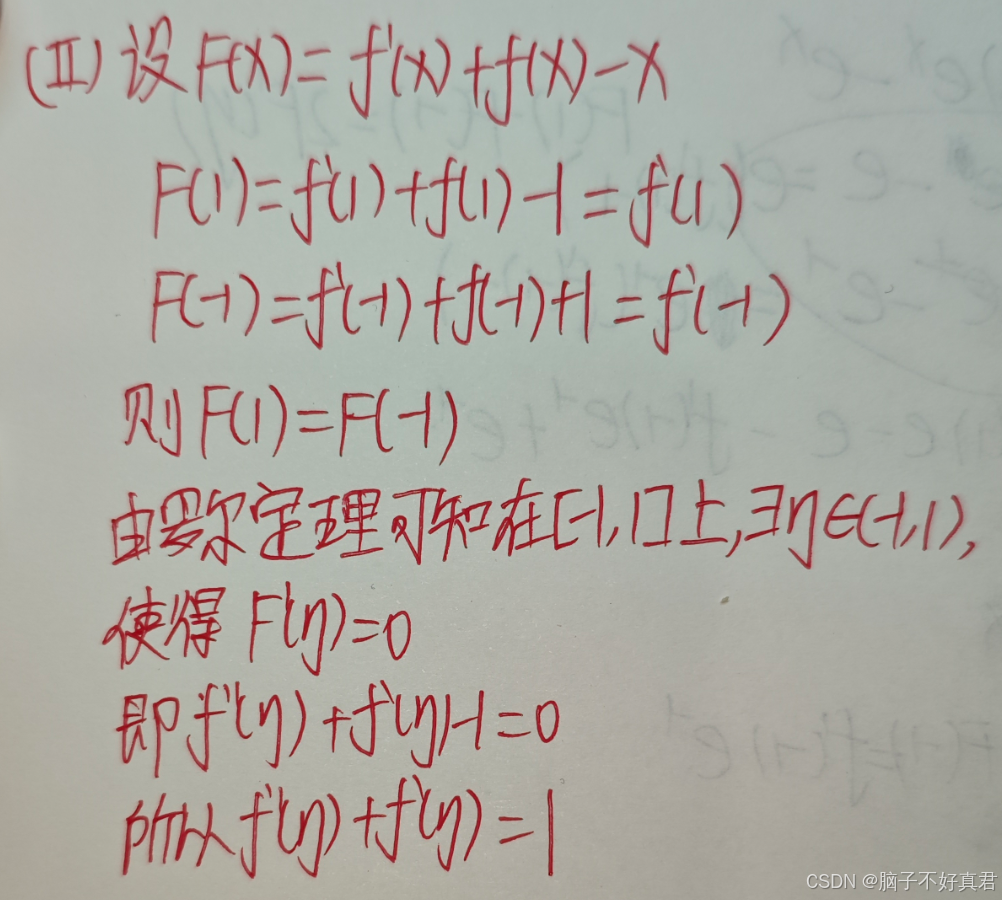 (II) 设 F(x) = f'(x) + f(x) - x
F(1) = f'(1) + f(1) - 1 = f'(1)
F(-1) = f'(-1) + f(-1) + 1 = f'(-1)
则 F(1) = F(-1)
由罗尔定理可知在[-1,1]上,∃η∈(-1,1),
使得 F'(η)=0
即 f''(η) + f'(η) - 1 = 0
所以 f''(η) + f'(η) = 1
CSDN @脑子不好真君